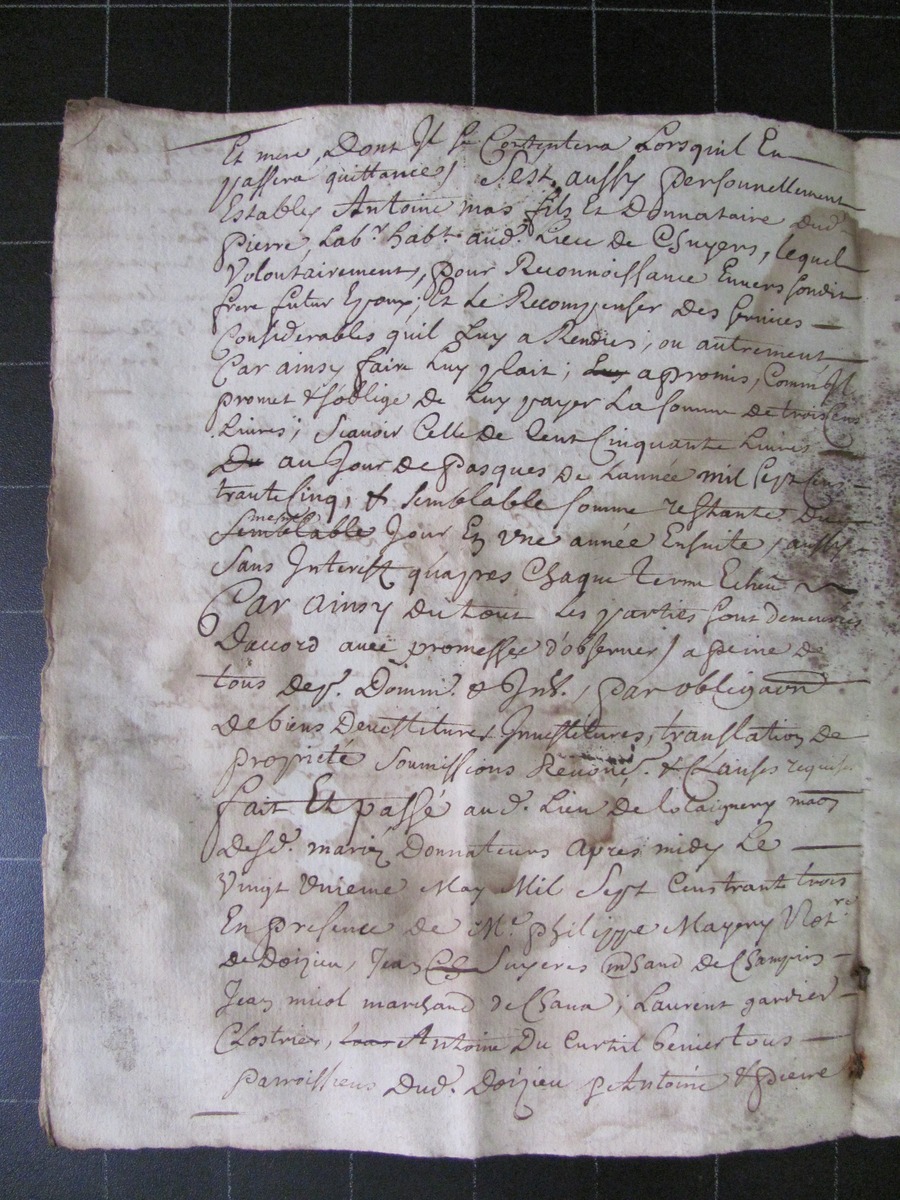 Et mere, Dont Il se Contentera Lorsquil En
passera quittances / S'est aussy personnellement
Estably Antoine mas filz Et Donnataire dud.
Pierre, Labr. habt. aud. Lieu de Chuyers, lequel
Volontairement, pour Reconnoissance Envers sondit
frere futur Epoux, Et Le Recompenser des services
Considerables quil Luy a Rendües, ou autrement
Car ainsy faire Luy plait; Luy a promis, Comme Il
promet & s'oblige de Luy payer La somme de trois Cens
Livres; Scavoir Celle de Cent Cinquante Livres
Du au Jour de Pasques de L'année mil sept Cens
trante Cinq, & semblable somme restante Du
mesme
Semblable Jour En Une année Ensuite, aussy
Sans Interest qu'apres Chaque terme Echeu
Car ainsy du tout Les parties sont demeurées
D'accord avec promesse d'observer / a peine de
tous dep. Domm. & Int., par obligaon
de biens Devestitures Investitures, translation de
propriété Soumissions Renonc. & Clauses requises
fait Et passé aud. Lieu De maon
desd. mariez Donnateurs apres midy Le
Vingt Unieme May Mil Sept Cens trante trois
En presence de Me. philippe Mayery Notre
de Doizieu, Jean Ch Suyeres mchand de
Jean micol marchand de Chava; Laurent gardier
Clostrier, Antoine Du Curtil tous
parroissiens Dud. Doizieu & Antoine & pierre